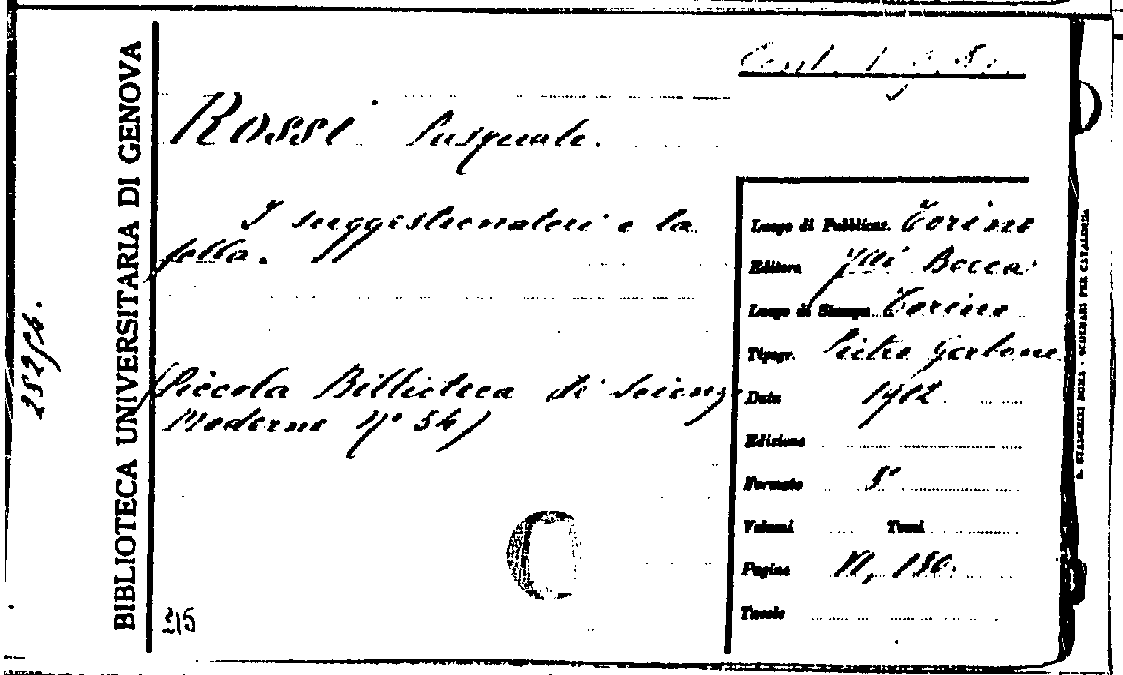 BIBLIOTECA UNIVERSITARIA DI GENOVA
Rossi Pasquale.
I suggestionatori e la
folla.
(Piccola Biblioteca di Scienze
Moderne Nº 54)
215
Luogo di Pubblicaz. Torino
Editore F.lli Bocca
Luogo di Stampa Torino
Tipogr. Pietro Gerbone
Data 1902
Edizione
Formato 8º
Volumi Tomi
Pagine VI,
Tavole